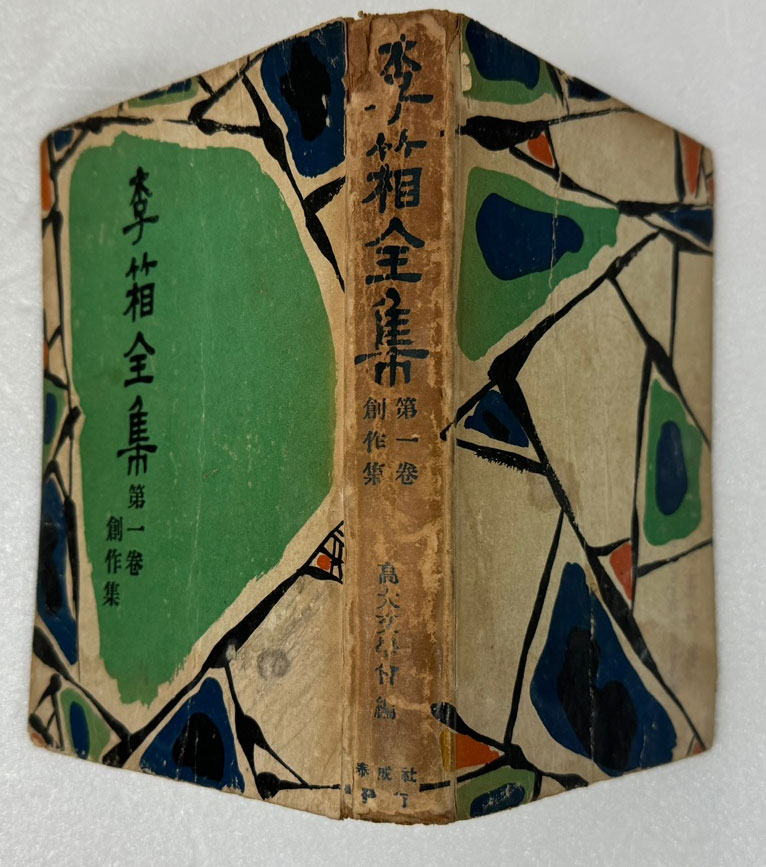 李箱全集
第一卷
創作集
李箱全集
第一卷
創作集
高大文學會編
泰成社